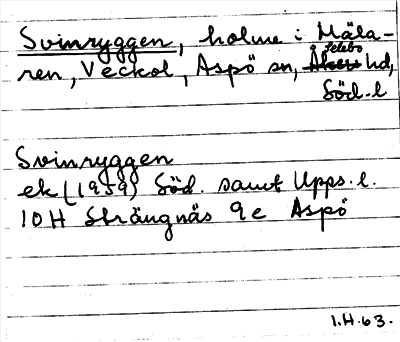 Svinryggen, holme i Mäla-
ren, Veckol, Aspö sn, Selebo hd,
Söd. l
Svinryggen
ek (1959) Söd. samt Upps. l.
10H Strängnäs 9e Aspö
I.H. 63.